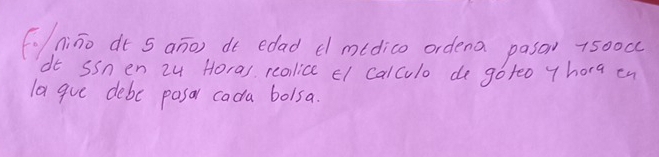 F./niño de 5 años de edad el medico ordena pasar 1500cc
de SSn en 24 Horas. realice el calculo de goteo y hora en
la que debe pasar cada bolsa.